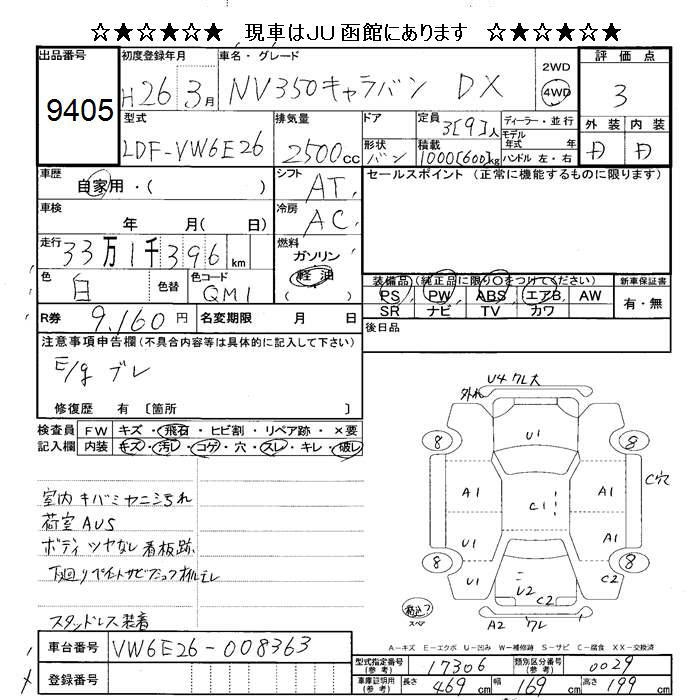 ☆★☆★☆★ 現車はJU函館にあります ☆★☆★☆★
出品番号
9405
初度登録年月
H26 3月
車名・グレード
NV350キャラバン DX
2WD
4WD
評価点
3
外装 内装
D D
型式
LDF-VW6E26
排気量
2500cc
ドア
形状
バン
定員
3[9]人
積載
1000[600]kg
ディーラー・並行
モデル
年式 年
ハンドル 左・右
車歴
自家用・( )
シフト
AT
セールスポイント (正常に機能するものに限ります)
車検
年 月( 日)
冷房
AC
走行
33万1千396km
燃料
ガソリン
軽油
( )
色
白
色替
色コード
QM1
装備品(純正品に限り○をつけてください)
PS PW ABS エアB AW
SR ナビ TV カワ
新車保証書
有・無
R券
9,160円
名変期限 月 日
後日品
注意事項申告欄(不具合内容等は具体的に記入して下さい)
E/g ブレ
修復歴 有 〔箇所 〕
検査員
記入欄
FW キズ・飛石・ヒビ割・リペア跡・×要
内装 キズ・汚レ・コゲ・穴・スレ・キレ・破レ
室内 キバミヤニ汚れ
荷室 AUS
ボディ ツヤなし 看板跡
スタッドレス装着
U4 ワレ大
外れ
8
U1
8
A1
C1
A1
C穴
U1
A1
8
U1
U2
C2
C2
8
積込
スペア
A2 ワレ
A-キズ E-エクボ U-凹み W-補修跡 S-サビ C-腐食 XX-交換済
車台番号
VW6E26-008363
登録番号
型式指定番号
(参考)
17306
類別区分番号
(参考)
0029
車庫証明用
(参考)
長さ 469cm
幅 169cm
高さ 199cm